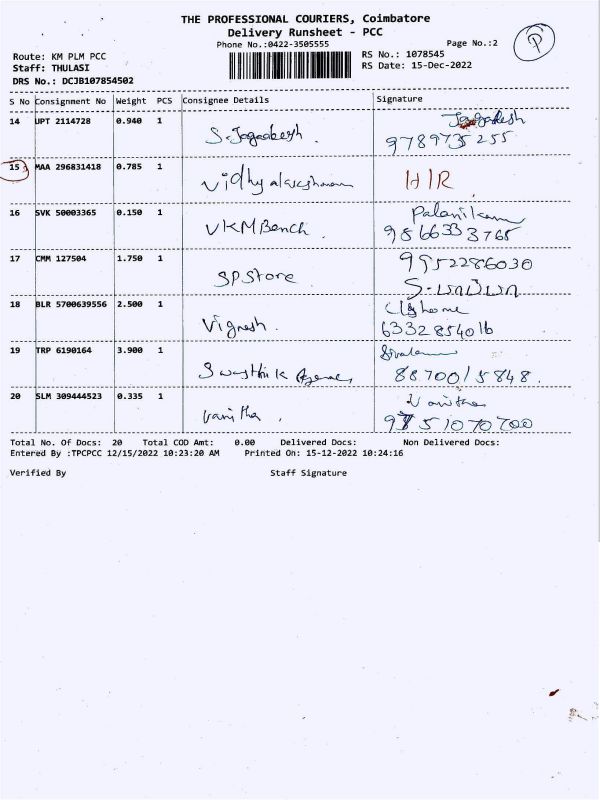 THE PROFESSIONAL COURIERS, Coimbatore
Delivery Runsheet - PCC
Phone No.:0422-3505555
Page No.:2
P
Route: KM PLM PCC
RS No.: 1078545
Staff: THULASI
RS Date: 15-Dec-2022
DRS No.: DCJB107854502
S No Consignment No Weight PCS Consignee Details Signature
14 UPT 2114728 0.940 1 S. Jagadeesh Jagadesh
9789735255
15 MAA 296831418 0.785 1 Vidhyalakshmanan HIR
16 SVK 50003365 0.150 1 VKM Bench Palanikam
9566333765
17 CMM 127504 1.750 1 SP Store 9952286030
S-பாப்பா
18 BLR 5700639556 2.500 1 Vignesh.
6332854016
19 TRP 6190164 3.900 1 Swasthik
88700/5848.
20 SLM 309444523 0.335 1 Vanitha. Vanitha
9751070700
Total No. Of Docs: 20 Total COD Amt: 0.00 Delivered Docs: Non Delivered Docs:
Entered By :TPCPCC 12/15/2022 10:23:20 AM Printed On: 15-12-2022 10:24:16
Verified By Staff Signature